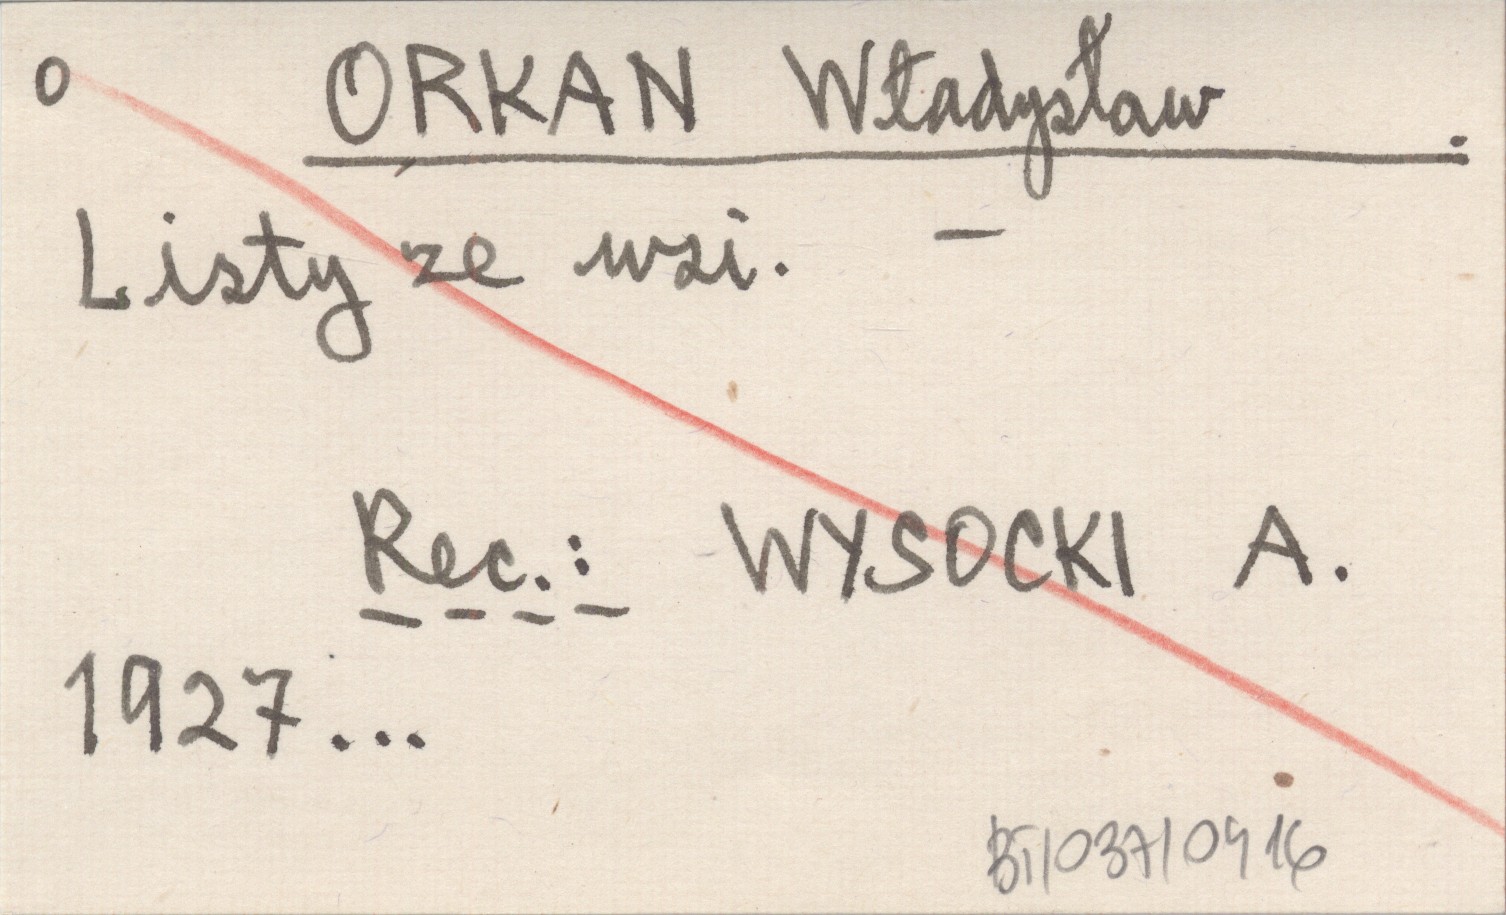 o ORKAN Władysław :
Listy ze wsi. –
Rec.: WYSOCKI A.
1927...
BT/037/0916